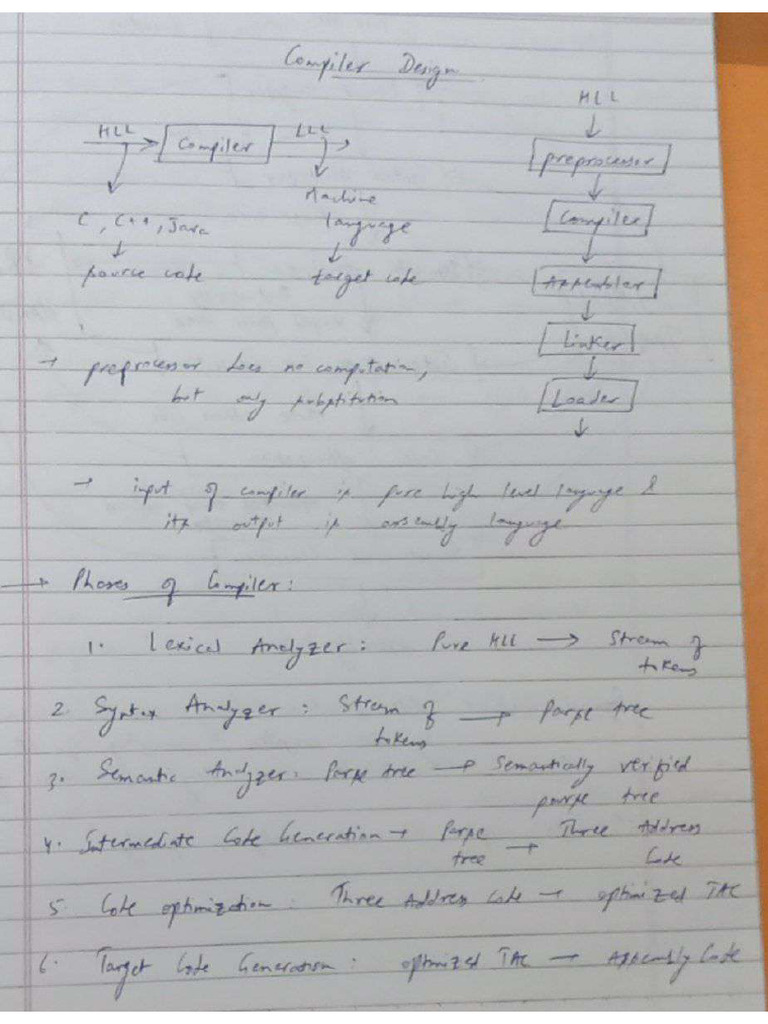 Compiler Design
HLL
Compiler
LLL
C, C++, Java
source code
Machine
language
target code
HLL
preprocessor
Compiler
Assembler
Linker
Loader
→ preprocessor does no computation,
but only substitution
→ input of compiler is pure high level language &
its output is assembly language
→ Phases of Compiler:
1. Lexical Analyzer: Pure HLL → Stream of
tokens
2. Syntax Analyzer: Stream of → Parse tree
tokens
3. Semantic Analyzer: Parse tree → Semantically verified
parse tree
4. Intermediate Code Generation → Parse → Three Address
tree Code
5. Code optimization: Three Address Code → optimized TAC
6. Target Code Generation: optimized TAC → Assembly Code